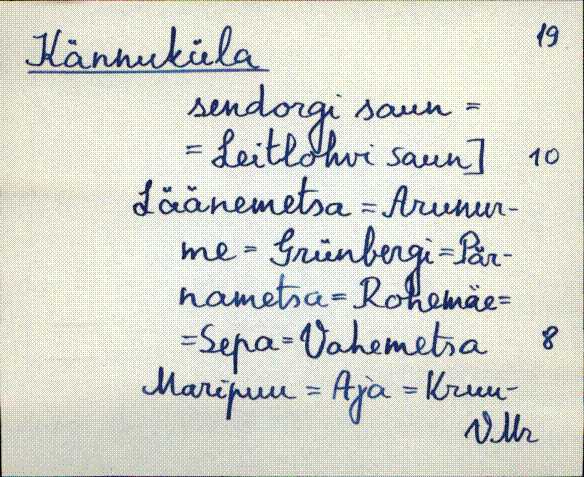 19
Kännuküla
sendorgi saun =
= Leitlohvi saun] 10
Läänemetsa = Arunur-
me = Grünbergi = Pär-
nametsa = Rohemäe =
= Sepa = Vahemetsa 8
Maripuu = Aja = Kruu-
V.Mr